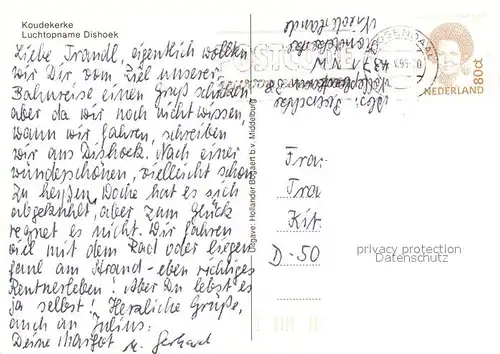 Koudekerke
Luchtopname Dishoek
Liebe Traudl, eigentlich wollten
wir Dir vom Ziel unserer
Bahnreise einen Gruß schicken
aber da wir noch nicht wissen,
wann wir fahren, schreiben
wir aus Dishoek. Nach einer
wunderschönen, vielleicht schon
zu heißen, Woche hat es sich
abgekühlt, aber zum Glück
regnet es nicht. Wir fahren
viel mit dem Rad oder liegen
faul am Strand - eben richtiges
Rentnerleben! Aber Du lebst es
ja selbst! Herzliche Grüße,
auch an Julius.
Deine Margot u. Gerhard
Uitgave: Hollander Bogaert b.v. Middelburg
Niederlande
NEDERLAND
80ct
Frau
Tra
Kit
D-50
privacy protection
Datenschutz